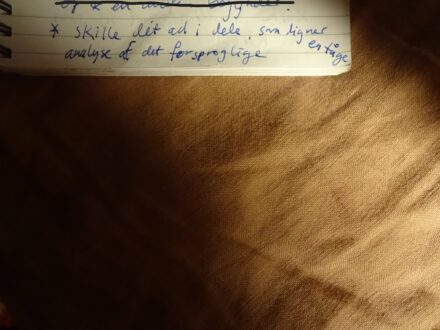 * skille dét ad i dele, som ligner en tåge
analyse af det førsproglige